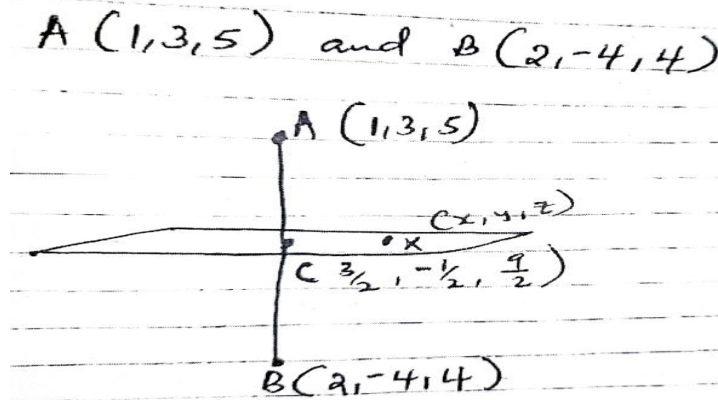 A (1,3,5) and B (2,-4,4)
A (1,3,5)
(x,y,z)
X
C 3/2, -1/2, 9/2)
B(2,-4,4)